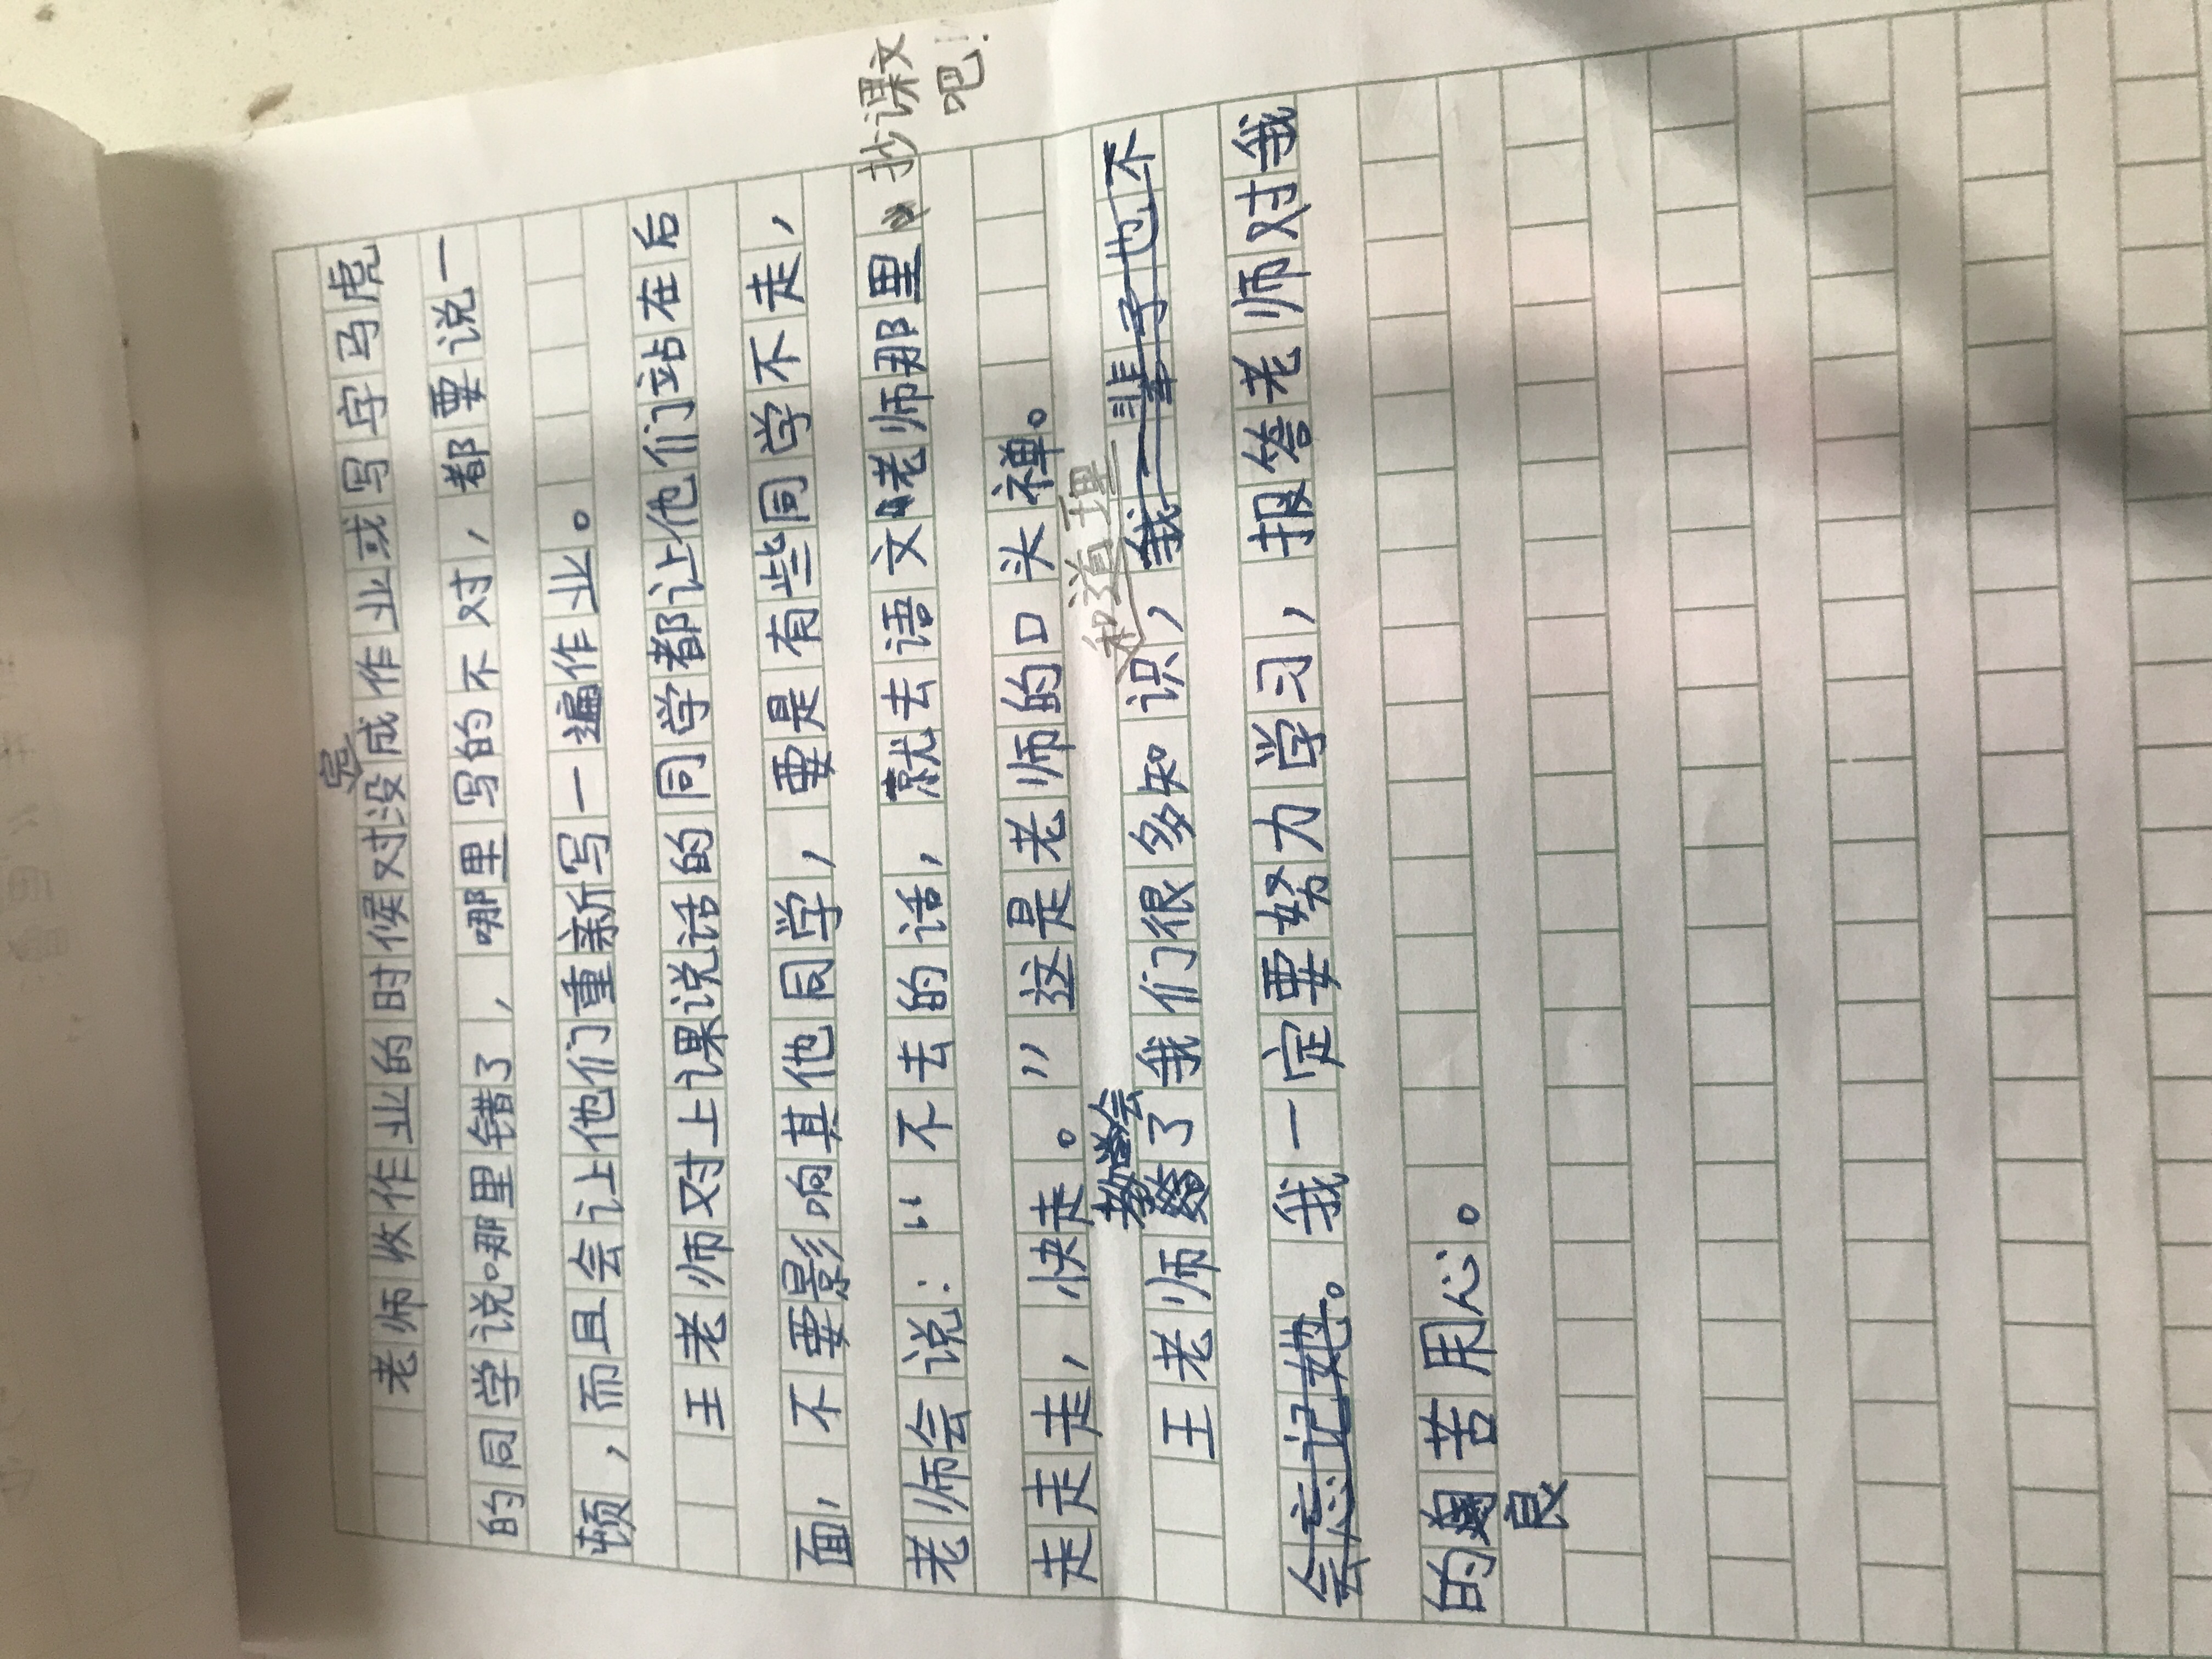 完
老师收作业的时候对没成作业或写字马虎
的同学说哪里错了，哪里写的不对，都要说一
顿，而且会让他们重新写一遍作业。
王老师对上课说话的同学都让他们站在后
面，不要影响其他同学，要是有些同学不走，
老师会说：“不去的话，就去语文老师那里抄课文
吧！
走走走，快走。”这是老师的口头禅。
教会
和道理
王老师了我们很多知识，我一辈子也不
会忘记她。我一定要努力学习，报答老师对我
的苦用心。
良